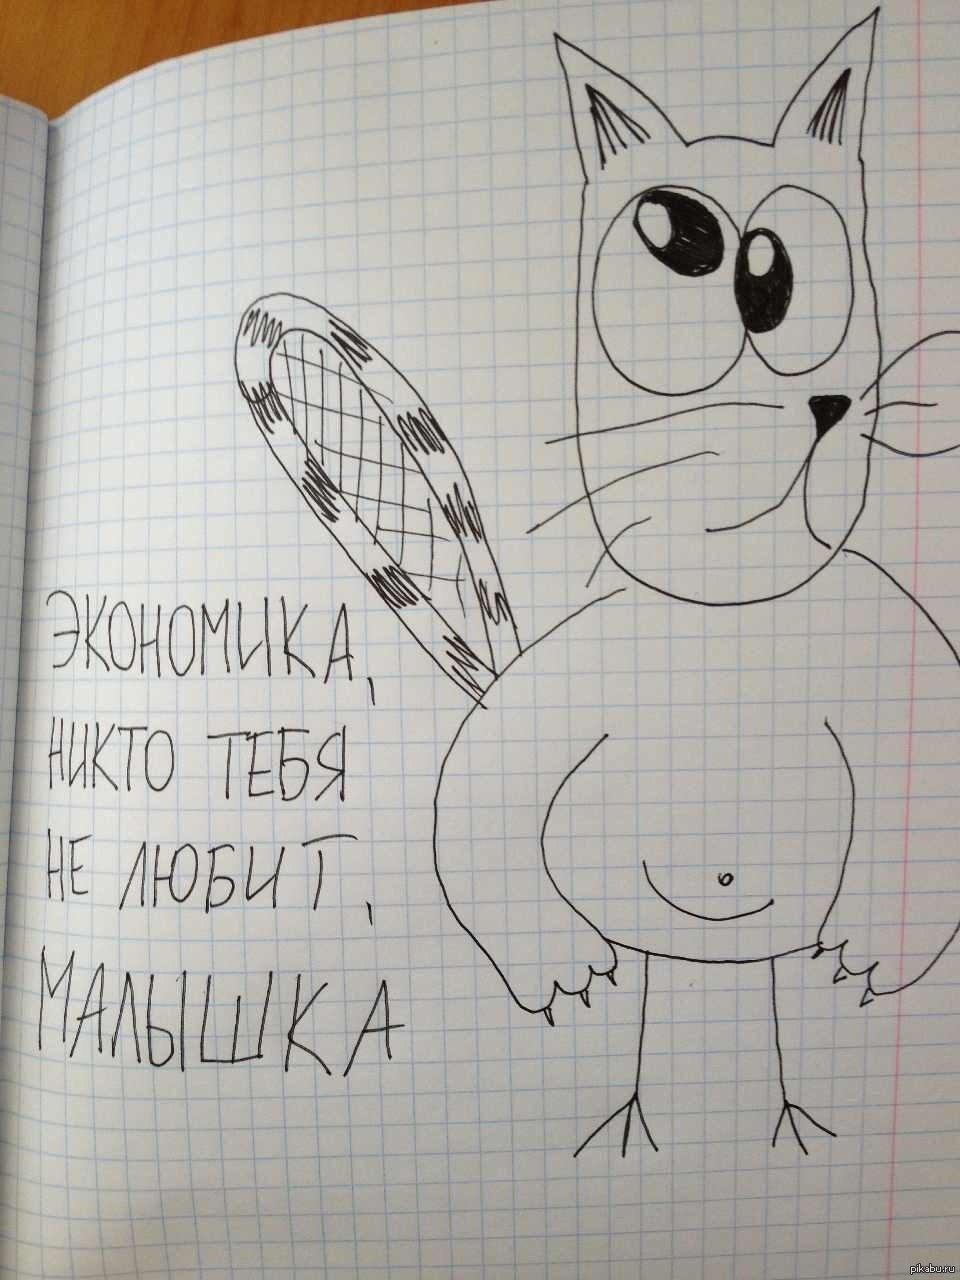 ЭКОНОМИКА,
НИКТО ТЕБЯ
НЕ ЛЮБИТ,
МАЛЫШКА
pikabu.ru